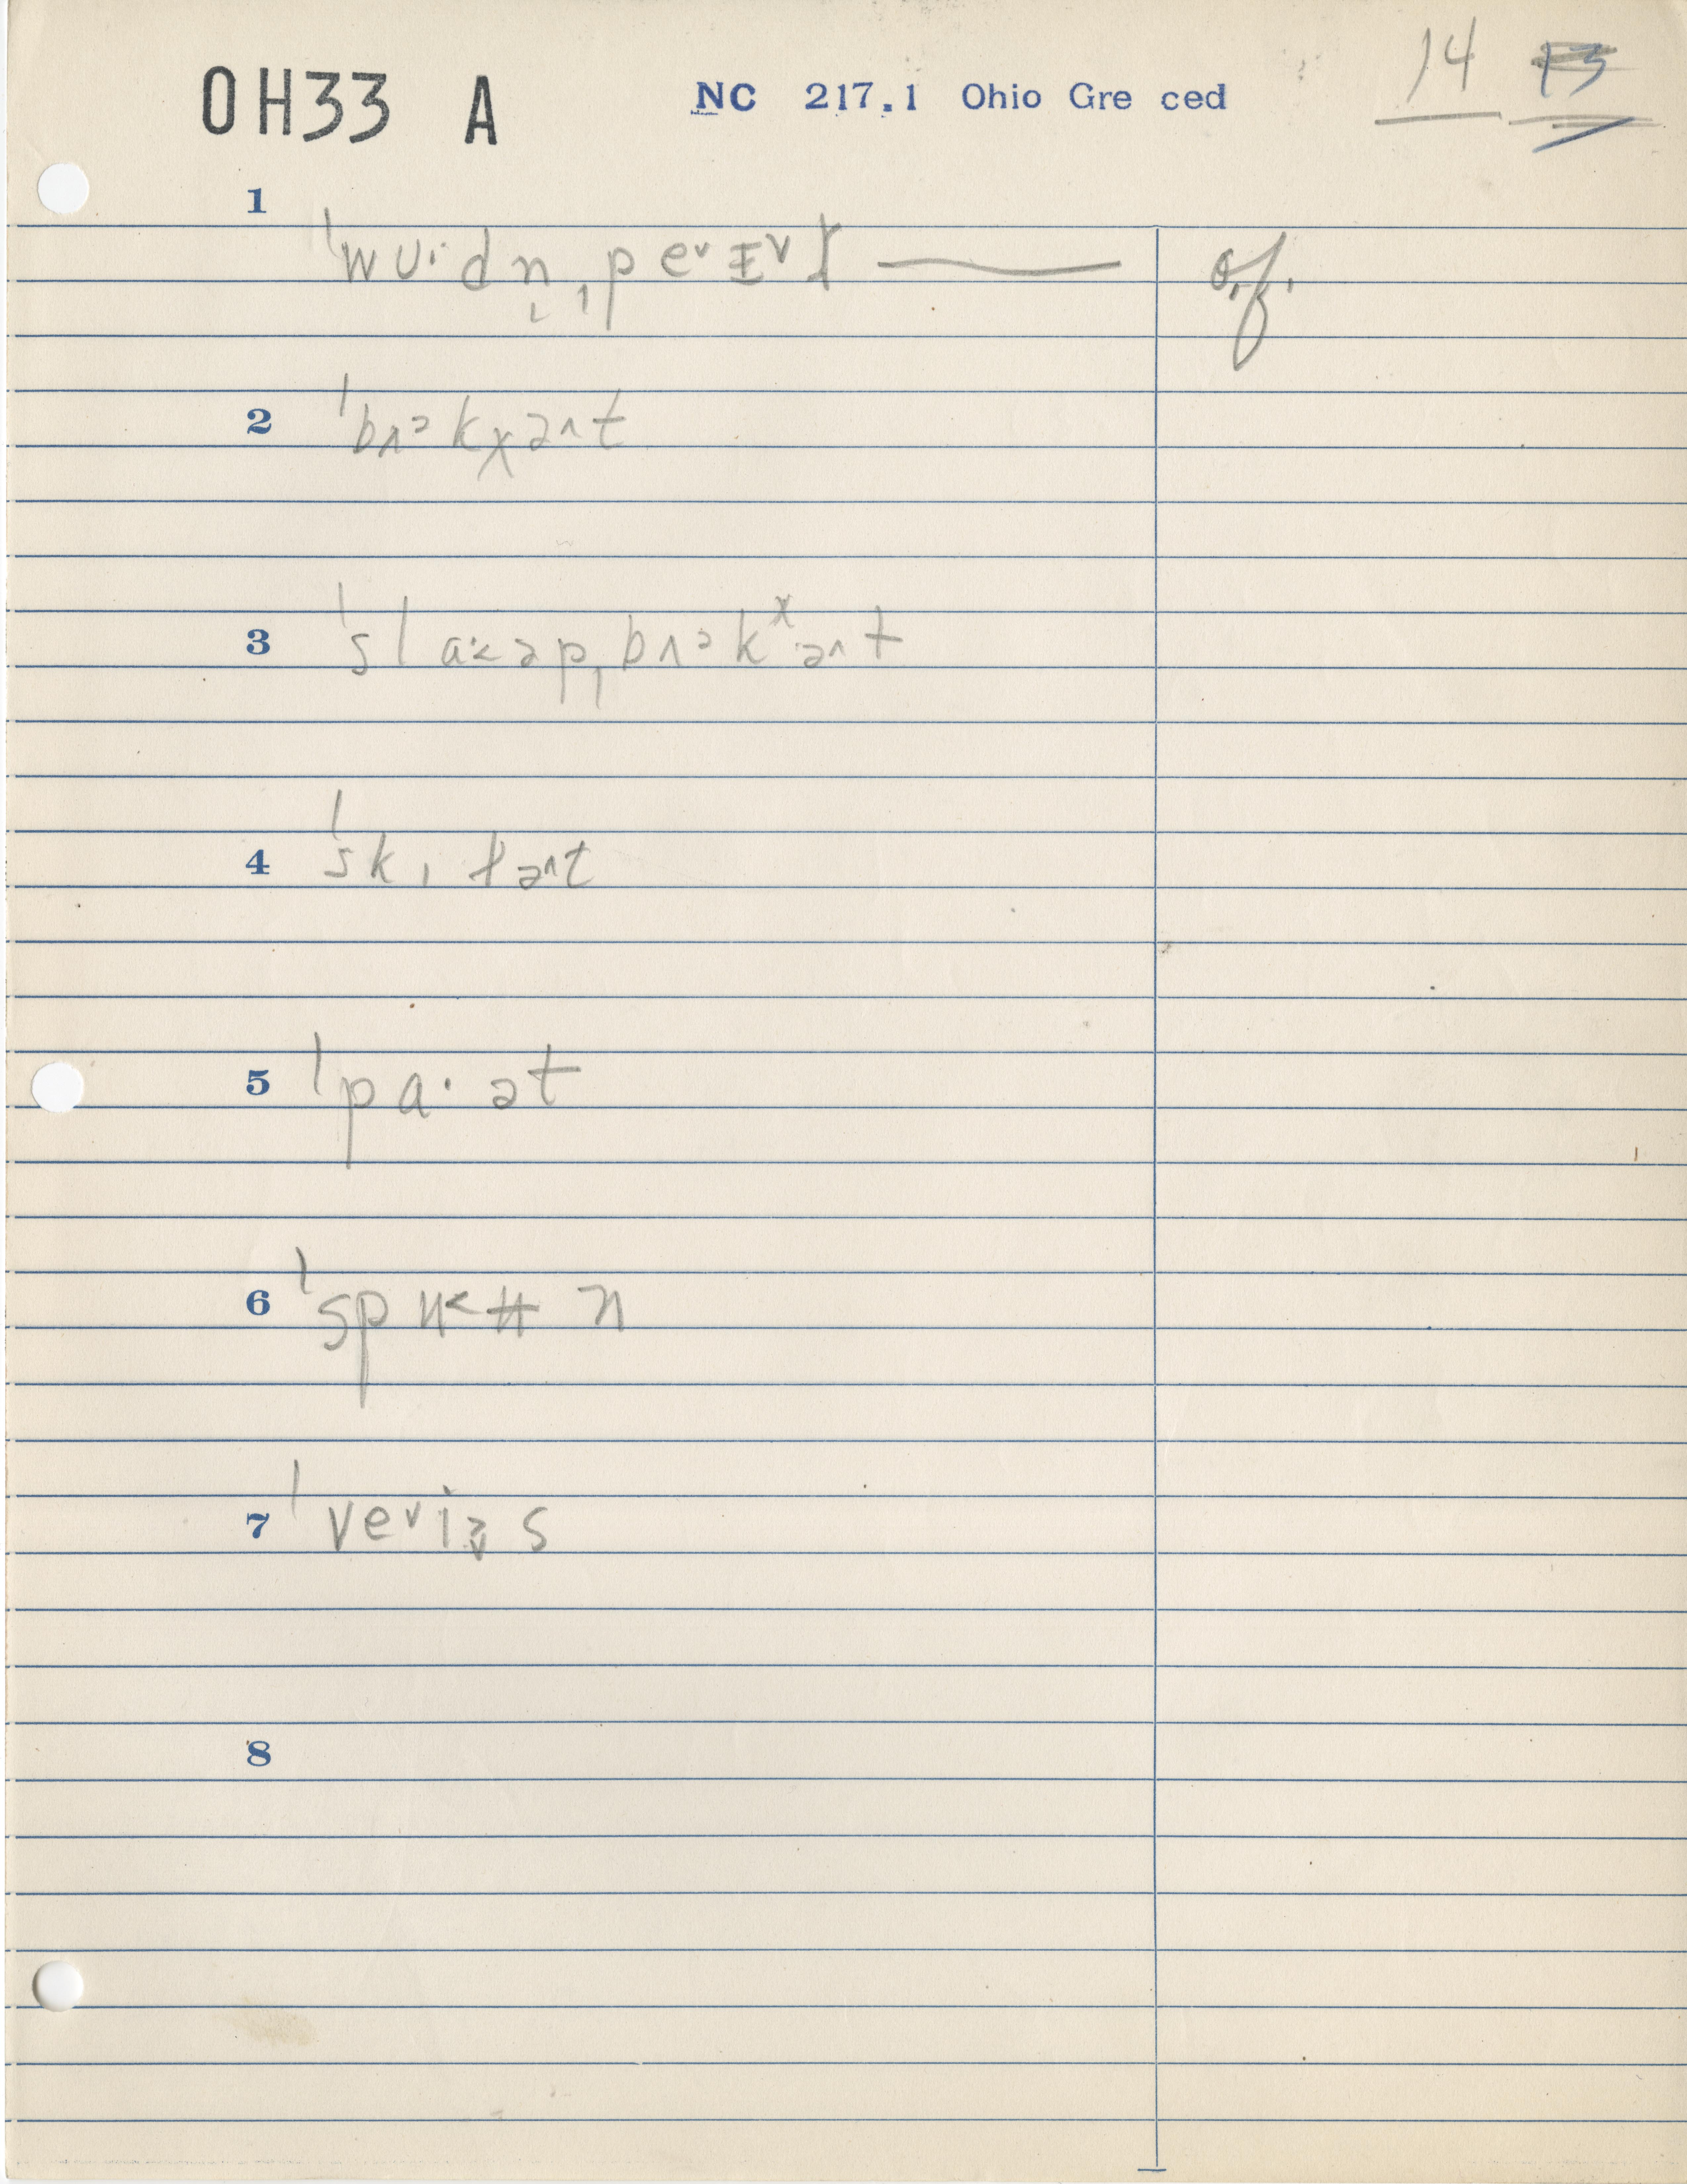 OH33 A NC 217.1 Ohio Gre ced 14 13
1 ˈwʊ·dn̩ˌpe˅ɪ˅ɫ —— o.f.
2 ˈbʌᵊkχə˄t
3 ˈslɑ·˂əpˌbʌᵊkˣə˄t
4 ˈskɪɫə˄t
5 ˈpɑ·ət
6 ˈspʉ˂ʉn
7 ˈve˅iə̬s
8